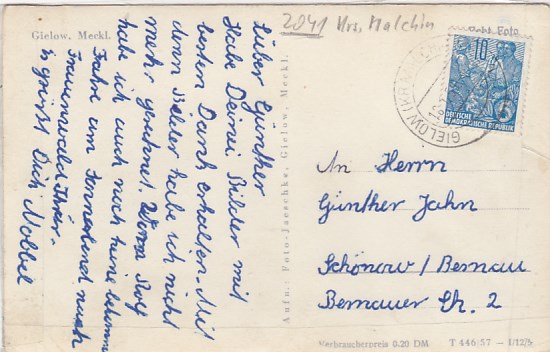 2041 Krs. Malchin
Gielow, Meckl.
Echt Foto
GIELOW (KR. MALCHIN)
10
5
DEUTSCHE
DEMOKRATISCHE REPUBLIK
Lieber Günther
Habe Deine Bilder mit
besten Dank erhalten. Mit
den Bilder habe ich nicht
mehr gerechnet. Vom Rolf
habe ich auch noch keine bekommen
Fahre am Sonnabend nach
Frauenwald Thür.
Es grüßt Dich Nobbel
Aufn.: Foto-Jaeschke, Gielow, Meckl.
An Herrn
Günther Jahn
Schönow/Bernau
Bernauer Str. 2
Verbraucherpreis 0.20 DM T 446/57 - I/12/5